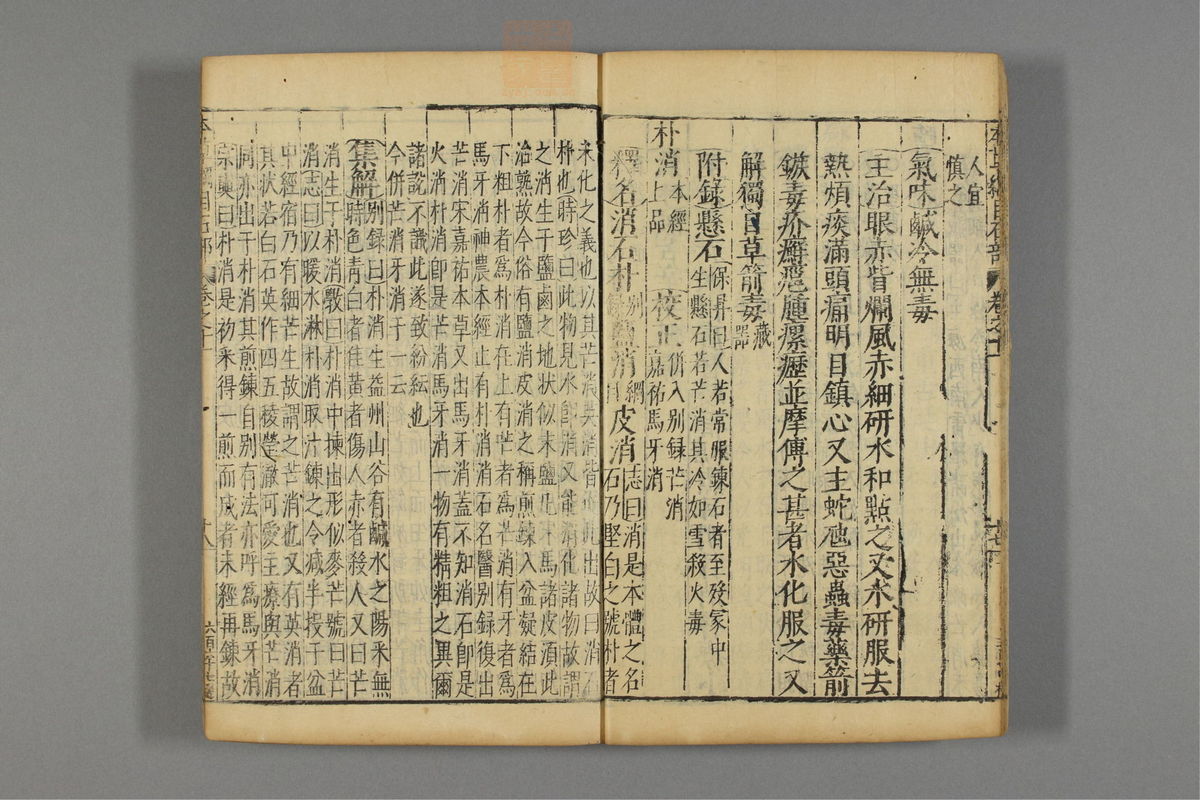 人宜
慎之
氣味鹹冷無毒
主治眼赤眥爛風赤細研水和點之又水研服去
熱煩痰滿頭痛明目鎮心又主蛇虺惡蟲毒藥箭
鏃毒疥癬瘡腫瘰癧並摩傅之甚者水化服之又
解獨自草箭毒藏器
附錄懸石保昇曰人若常服鍊石者至歿冢中
生懸石若芒消其冷如雪殺火毒
朴消本經上品 校正併入別錄芒消
嘉祐馬牙消
釋名消石朴別錄鹽消綱目皮消志曰消是本體之名
石乃堅白之號朴者
未化之義也以其芒消英消皆從此出故曰消石
朴也時珍曰此物見水即消又能消化諸物故謂
之消生于鹽鹵之地狀似末鹽凡牛馬諸皮須此
治熟故今俗有鹽消皮消之稱煎鍊入盆凝結在
下粗朴者為朴消在上有芒者為芒消有牙者為
馬牙消神農本經止有朴消消石名醫別錄復出
芒消宋嘉祐本草又出馬牙消蓋不知消石即是
火消朴消即是芒消馬牙消一物有精粗之異爾
諸說不識此遂致紛紜也
今併芒消牙消于一云
集解別錄曰朴消生益州山谷有鹹水之陽采無
時色青白者佳黃者傷人赤者殺人又曰芒
消生于朴消斅曰朴消中揀出形似麥芒號曰芒
消志曰以暖水淋朴消取汁鍊之令減半投于盆
中經宿乃有細芒生故謂之芒消也又有英消者
其狀若白石英作四五稜瑩澈可愛主療與芒消
同亦出于朴消其煎鍊自別有法亦呼為馬牙消
宗奭曰朴消是初采得一煎而成者未經再鍊故